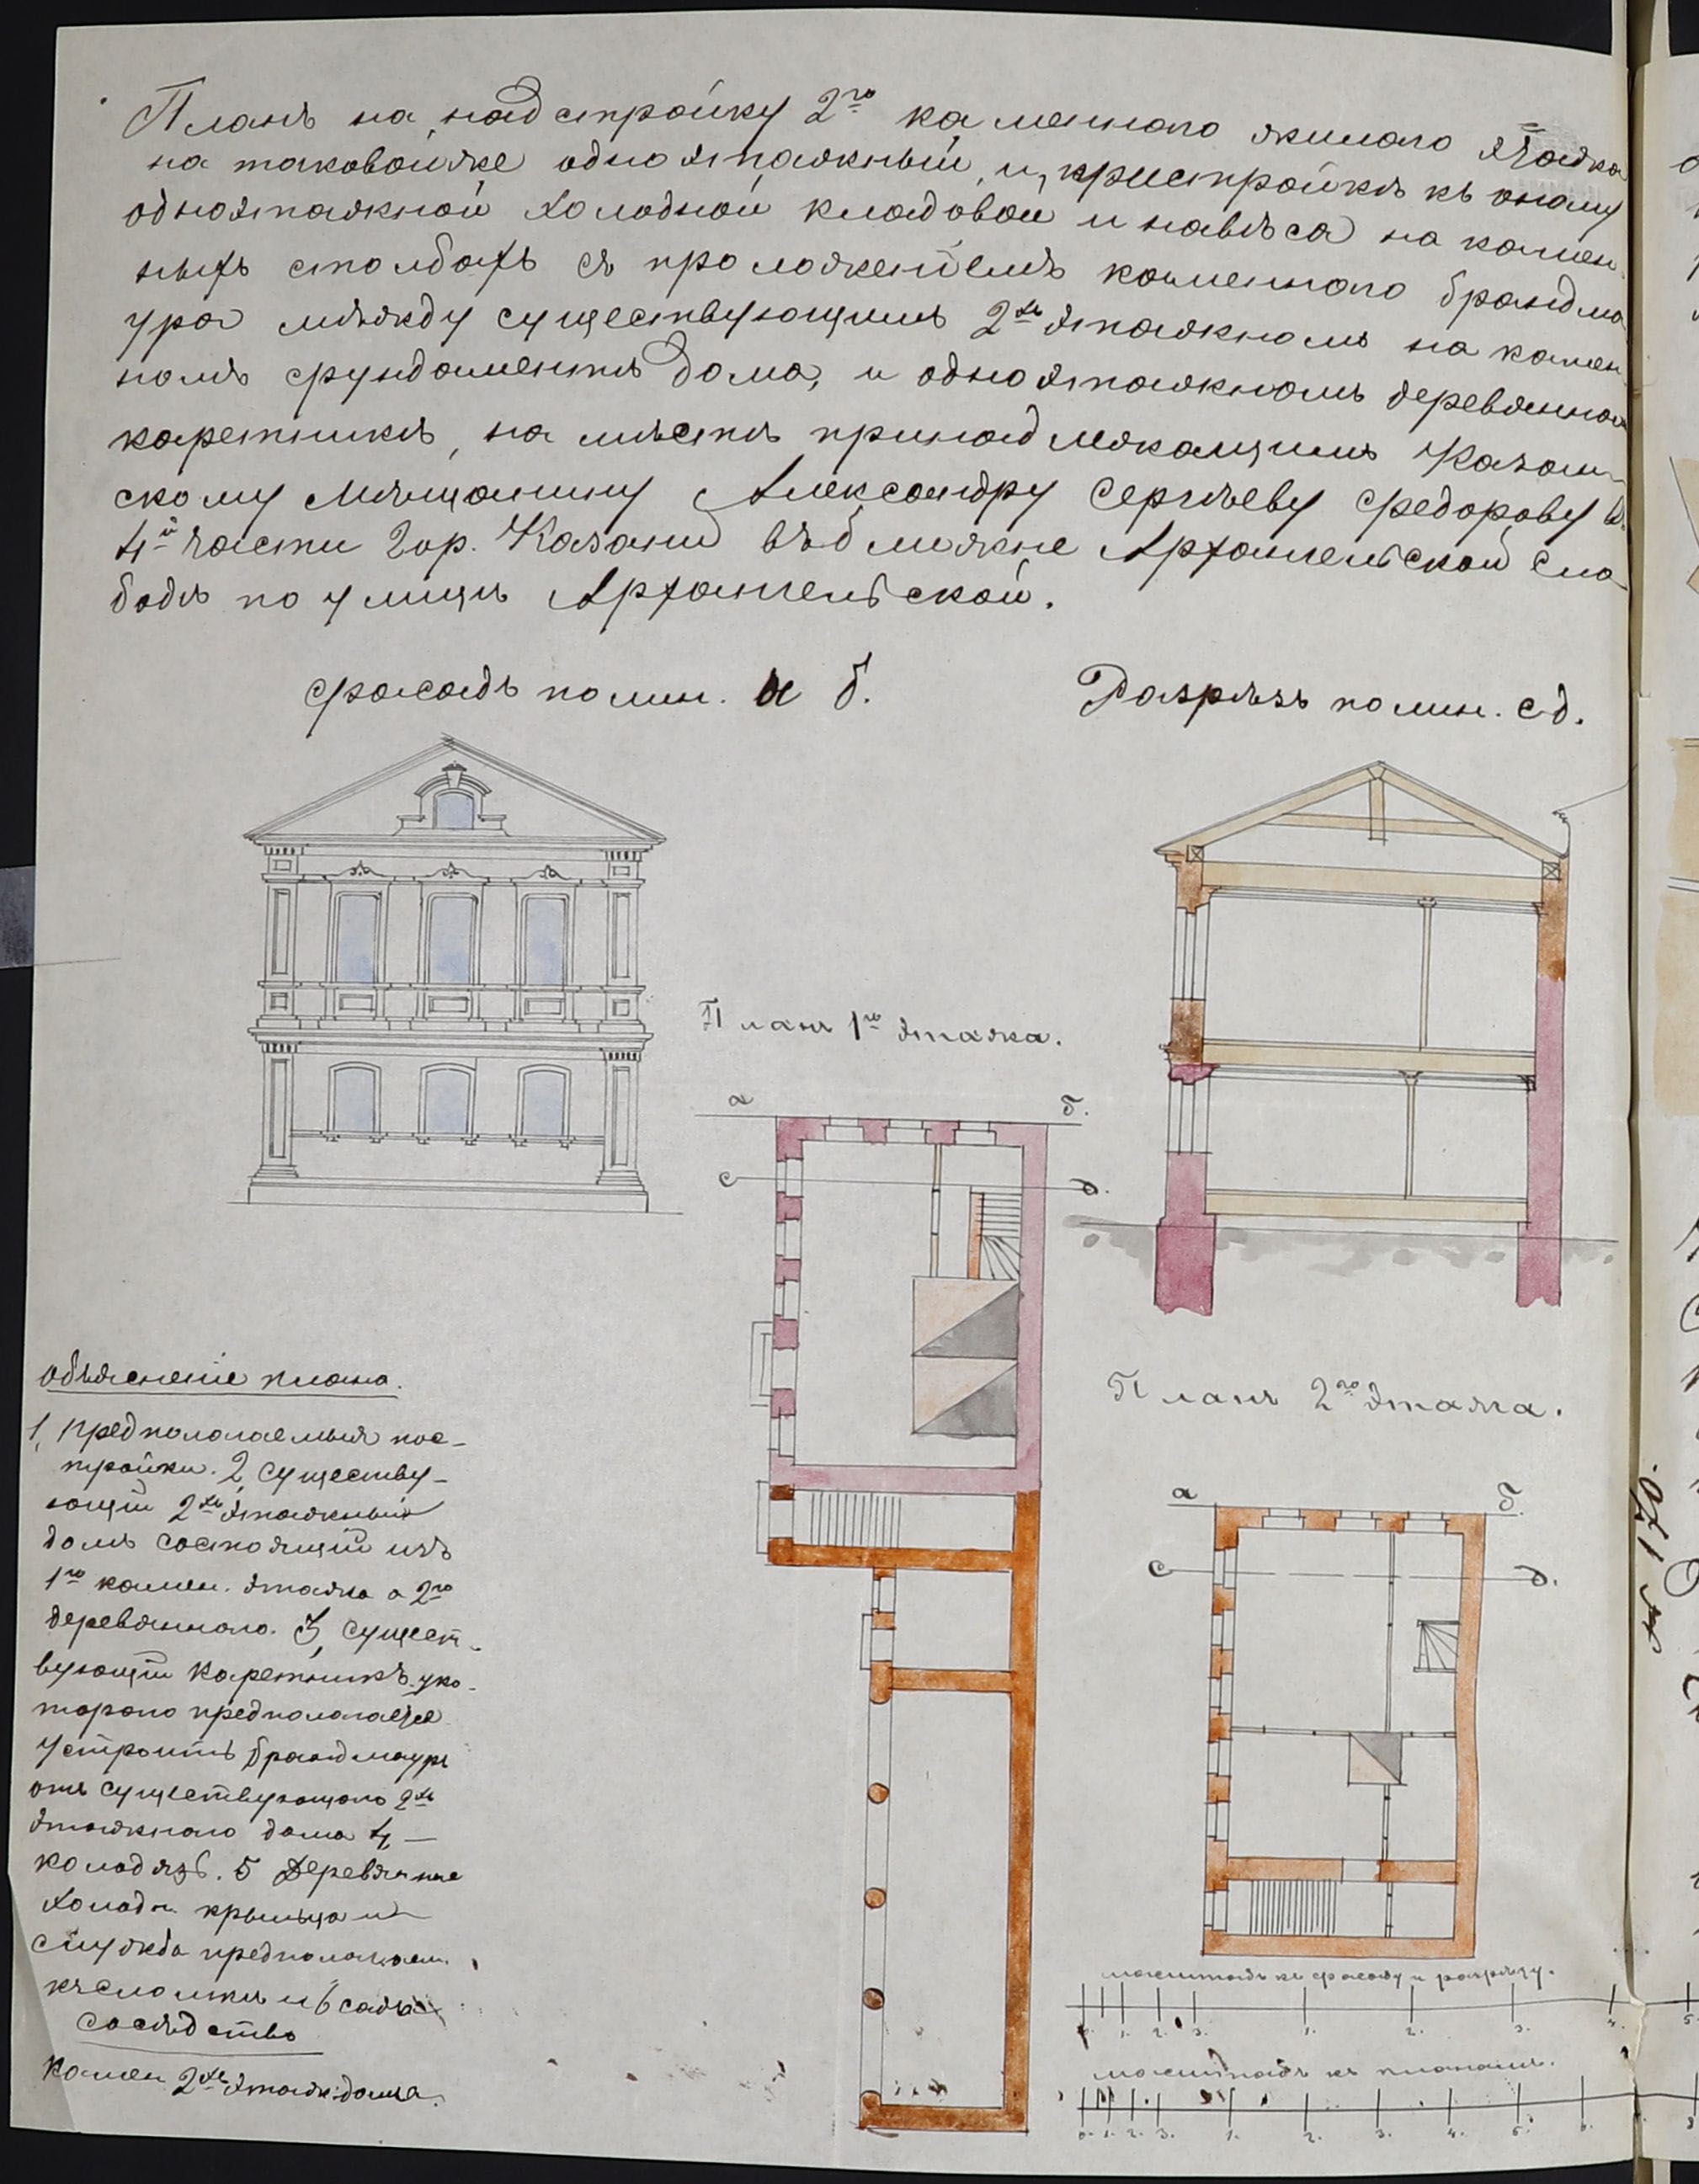 Планъ на надстройку 2го каменнаго жилаго этажа
на таковой же одноэтажный, и, пристройкѣ къ оному
одноэтажной холодной кладовой и навѣса на камен
ныхъ столбахъ съ проложенiемъ каменнаго брандма
ура между существующимъ 2хъ этажномъ на камен
номъ фундаментѣ дома, и одноэтажномъ деревянном
каретникѣ, на мѣстѣ принадлежащимъ Казан
скому Мѣщанину Александру Сергѣеву Федорову в.
4й части гор. Казани въ ближне Архангельской Сло
бодѣ по улицѣ Архангельской.
Фасадъ по лин. а б.
Разрѣзъ по лин. с д.
Планъ 1го этажа.
а б.
с д.
Объясненiе плана.
1, Предполагаемыя пос-
тройки. 2, Существу-
ющiй 2хъ этажный
домъ состоящiй изъ
1го камен. этажа а 2го
деревяннаго. 3, Сущест-
вующiй Каретникъ, у ко-
тораго предполагается
устроить брандмауръ
отъ существующаго 2хъ
этажнаго дома 4, —
колодязь. 5 Деревянные
холодн. крыльца и
служба предполагаем.
къ сломкѣ и 6 садъ
Сосѣдство
Камен 2хъ этажн. дома.
Планъ 2го этажа.
а б.
с д.
масштабъ къ фасаду и разрѣзу.
0. 1. 2. 3. 1. 2. 3. 4. 5.
масштабъ къ планамъ.
0. 1. 2. 3. 1. 2. 3. 4. 5. 6. 8